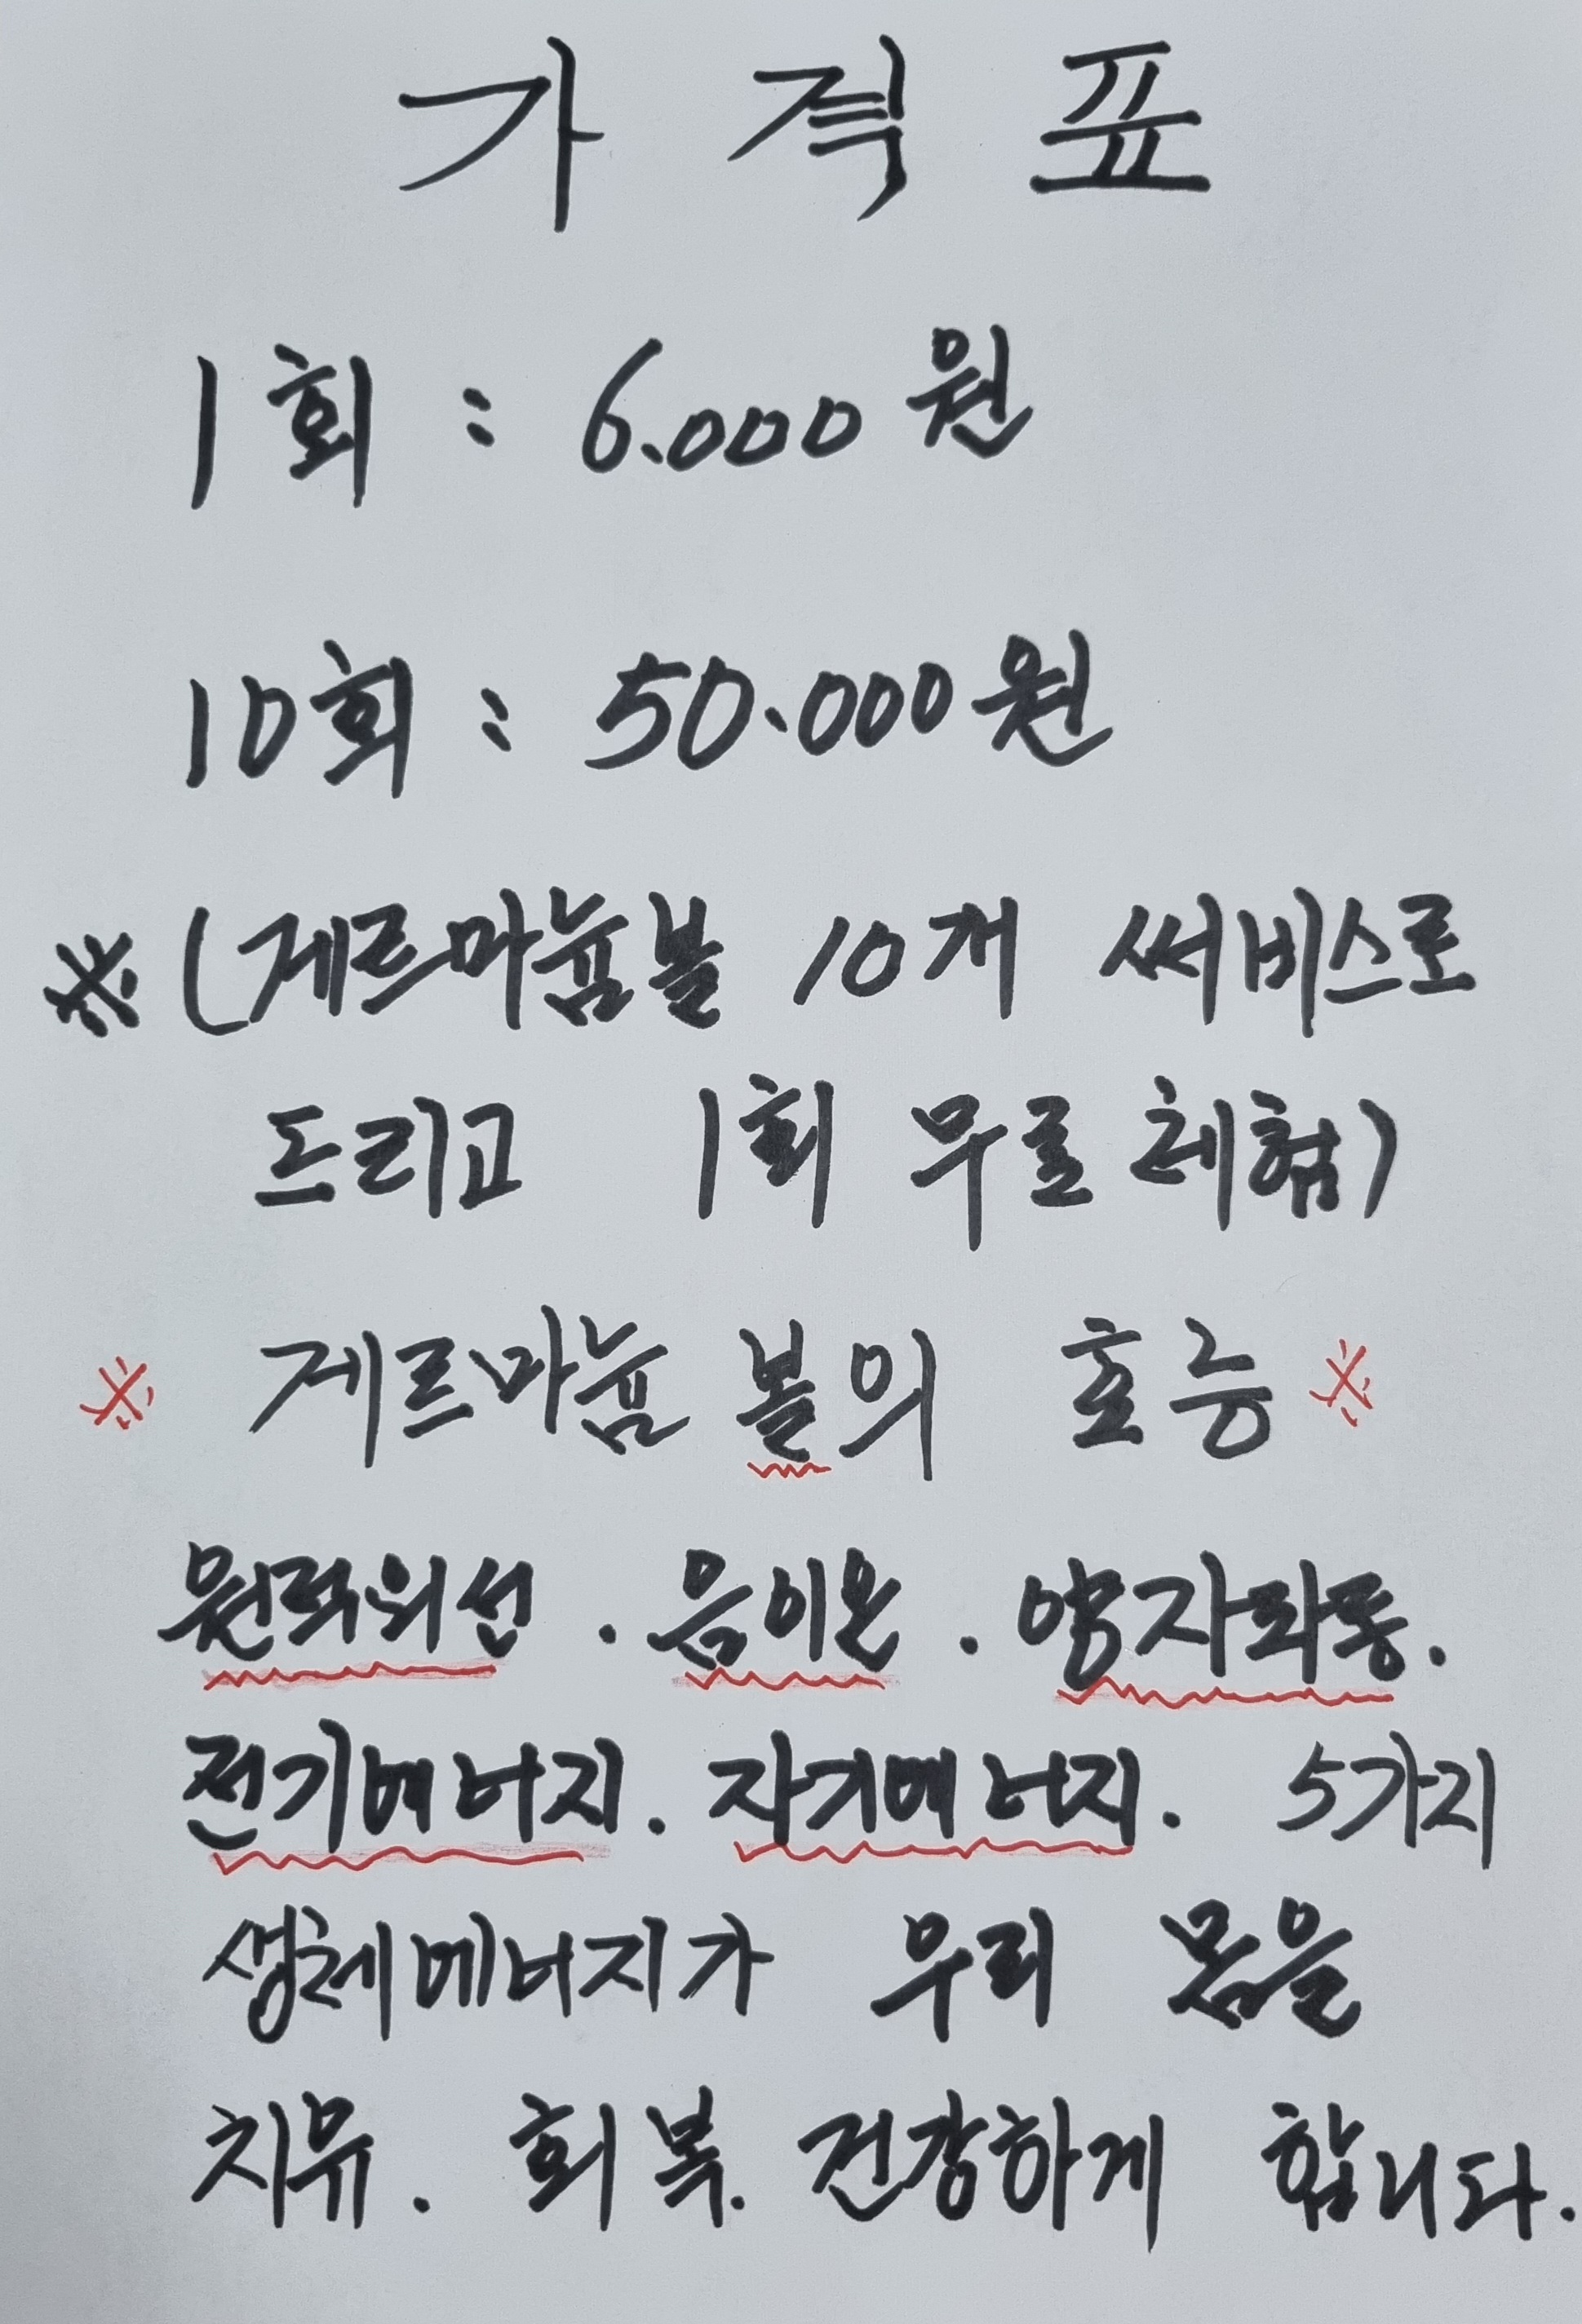 가격표
1회 : 6.000원
10회 : 50.000원
※ (게르마늄볼 10개 써비스로
드리고 1회 무료체험)
※ 게르마늄 볼의 효능 ※
원적외선 . 음이온 . 양자파동.
전기에너지. 자기에너지. 5가지
생체에너지가 우리 몸을
치유. 회복. 건강하게 합니다.